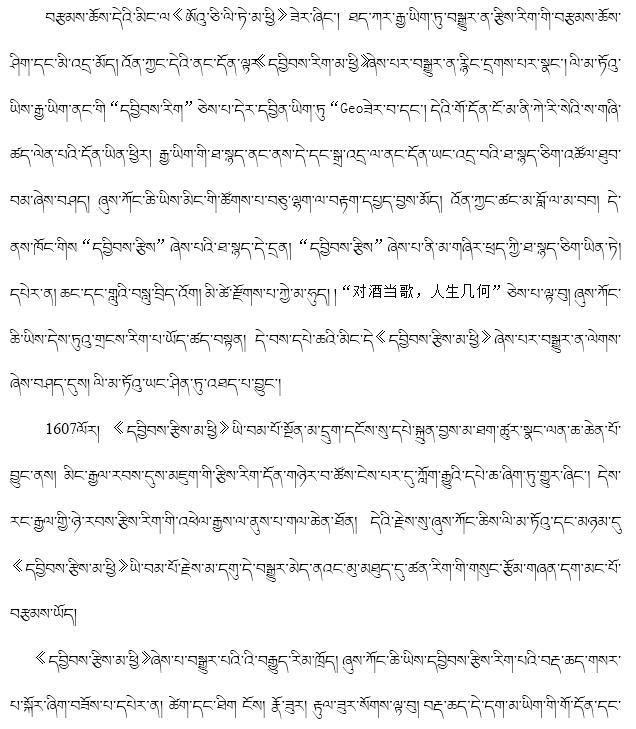 བརྩམས་ཆོས་དེའི་མིང་ལ《ཨོའུ་ཅི་ལི་ཏེ་མ་ཕྱི》ཟེར་ཞིང་། ཐད་ཀར་རྒྱ་ཡིག་ཏུ་བསྒྱུར་ན་རྩིས་རིག་གི་བརྩམས་ཆོས་
ཤིག་དང་མི་འདྲ་མོད། འོན་ཀྱང་དེའི་ནང་དོན་ལྟར《དབྱིབས་རིག་མ་ཕྱི》ཞེས་པར་བསྒྱུར་ན་རྙིང་དྲགས་པར་སྣང་། ལི་མ་ཏོའུ་
ཡིས་རྒྱ་ཡིག་ནང་གི “དབྱིབས་རིག” ཅེས་པ་དེར་དབྱིན་ཡིག་ཏུ “Geoཟེར་བ་དང་། དེའི་གོ་དོན་ངོ་མ་ནི་ཀེ་རི་སེའི་ས་གཞི་
ཚད་ལེན་པའི་དོན་ཡིན་ཕྱིར། རྒྱ་ཡིག་གི་ཐ་སྙད་ནང་ནས་དེ་དང་སྒྲ་འདྲ་ལ་ནང་དོན་ཡང་འདྲ་བའི་ཐ་སྙད་ཅིག་འཚོལ་ཐུབ་
བམ་ཞེས་བཤད། ཞུས་ཀོང་ཆི་ཡིས་མིང་གི་ཚོགས་པ་བཅུ་ལྷག་ལ་བརྟག་དཔྱད་བྱས་མོད། འོན་ཀྱང་ཚང་མ་བློ་ལ་མ་བབ། དེ་
ནས་ཁོང་གིས “དབྱིབས་རྩིས” ཞེས་པའི་ཐ་སྙད་དེ་དྲན། “དབྱིབས་རྩིས” ཞེས་པ་ནི་མ་གཞིར་ཕྲད་ཀྱི་ཐ་སྙད་ཅིག་ཡིན་ཏེ།
དཔེར་ན། ཆང་དང་གླུའི་བསླུ་བྲིད་འོག། མི་ཚེ་རྫོགས་པ་ཀྱེ་མ་ཧུད། །“对酒当歌，人生几何” ཅེས་པ་ལྟ་བུ། ཞུས་ཀོང་
ཆི་ཡིས་དེས་ཏུའུ་གྲངས་རིག་པ་ཡོད་ཚད་བསྟན། དེ་བས་དཔེ་ཆའི་མིང་དེ《དབྱིབས་རྩིས་མ་ཕྱི》ཞེས་པར་བསྒྱུར་ན་ལེགས་
ཞེས་བཤད་དུས། ལི་མ་ཏོའུ་ཡང་ཤིན་ཏུ་འཐད་པ་བྱུང་།
1607ལོར། 《དབྱིབས་རྩིས་མ་ཕྱི》ཡི་བམ་པོ་སྔོན་མ་དྲུག་དངོས་སུ་དཔེ་སྐྲུན་བྱས་མ་ཐག་ཚུར་སྣང་ལན་ཆ་ཆེན་པོ་
བྱུང་ནས། མིང་རྒྱལ་རབས་དུས་མཇུག་གི་རྩིས་རིག་དོན་གཉེར་བ་ཚོས་ངེས་པར་དུ་ཀློག་རྒྱུའི་དཔེ་ཆ་ཞིག་ཏུ་གྱུར་ཞིང་། དེས་
རང་རྒྱལ་གྱི་ཉེ་རབས་རྩིས་རིག་གི་འཕེལ་རྒྱས་ལ་ནུས་པ་གལ་ཆེན་ཐོན། དེའི་རྗེས་སུ་ཞུས་ཀོང་ཆིས་ལི་མ་ཏོའུ་དང་མཉམ་དུ
《དབྱིབས་རྩིས་མ་ཕྱི》ཡི་བམ་པོ་རྗེས་མ་དགུ་དེ་བསྒྱུར་མེད་ནའང་མུ་མཐུད་དུ་ཚན་རིག་གི་གསུང་རྩོམ་གཞན་དག་མང་པོ་
བརྩམས་ཡོད།
《དབྱིབས་རྩིས་མ་ཕྱི》ཞེས་པ་བསྒྱུར་པའི་འི་བརྒྱུད་རིམ་ཁྲོད། ཞུས་ཀོང་ཆི་ཡིས་དབྱིབས་རྩིས་རིག་པའི་བརྡ་ཆད་གསར་
པ་སྐོར་ཞིག་བཟོས་པ་དཔེར་ན། ཚེག་དང་ཐིག ངོས། རྣོ་ཟུར། རྟུལ་ཟུར་སོགས་ལྟ་བུ། བརྡ་ཆད་དེ་དག་མ་ཡིག་གི་གོ་དོན་དང་